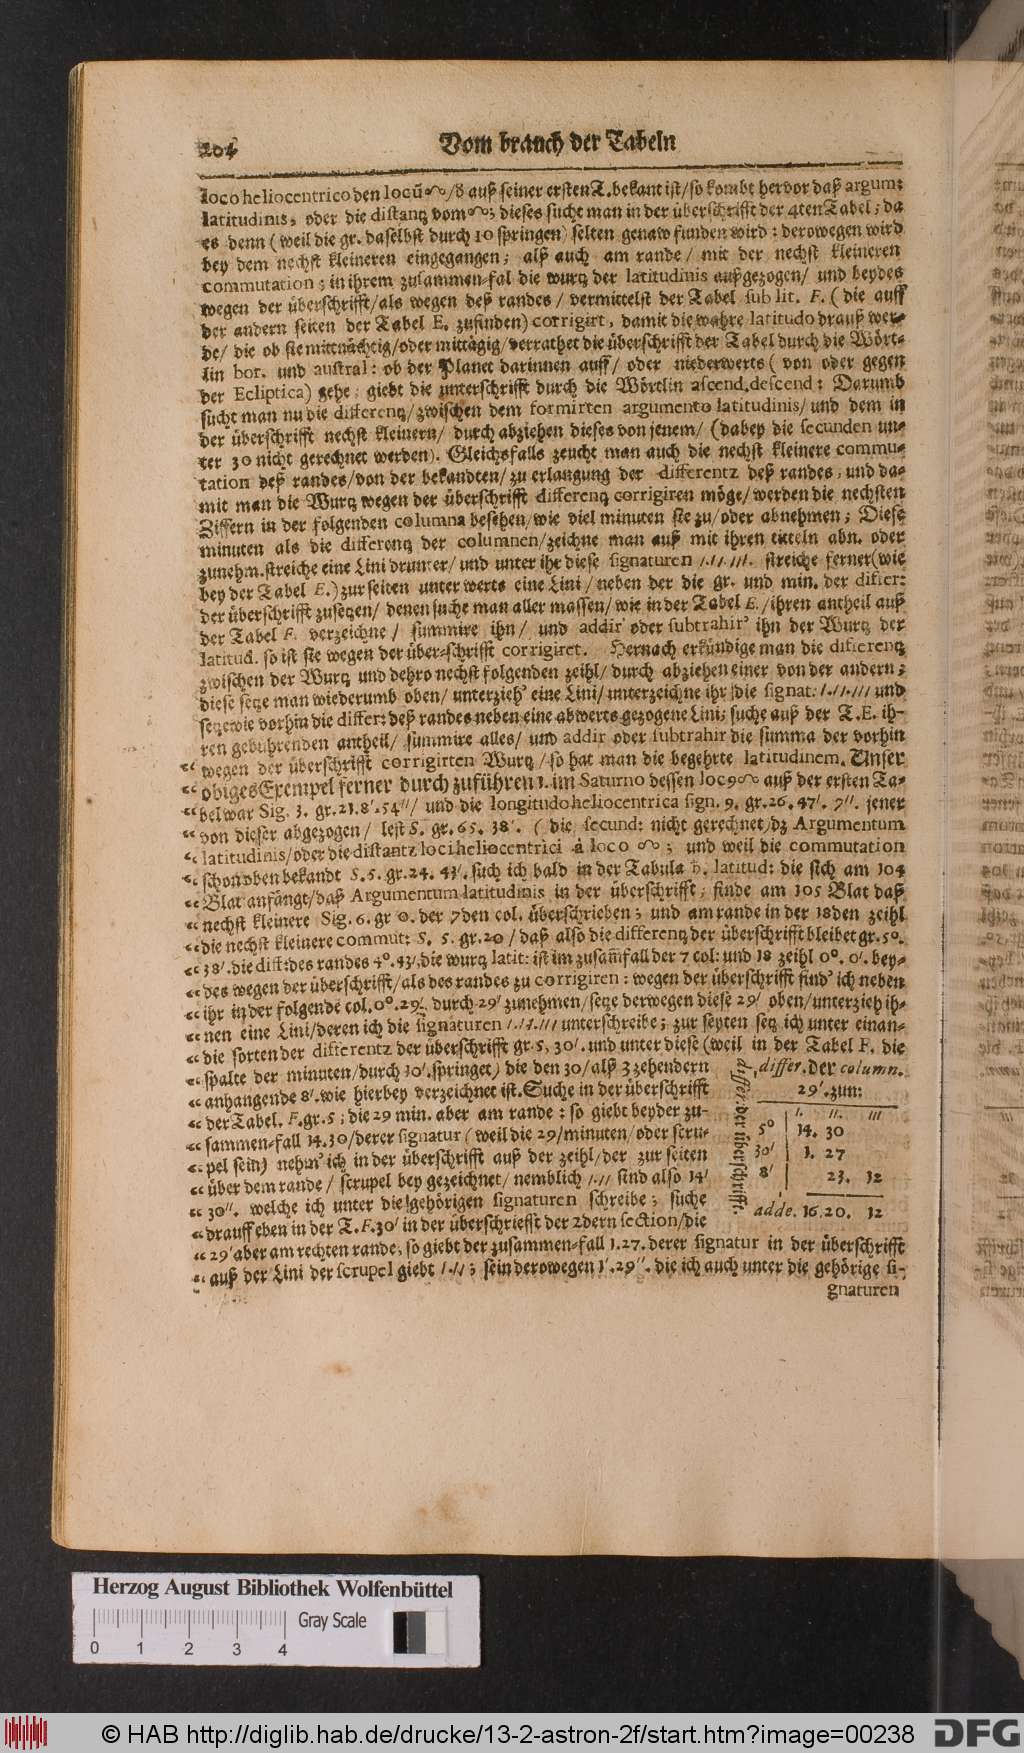 204 Vom brauch der Tabeln
loco heliocentrico den locũ ☊/8 auß seiner ersten T. bekant ist/so kombt hervor daß argum:
latitudinis, oder die distantz vom ☊; dieses sucht man in der überschrifft der 4ten Tabel; da
es denn (weil die gr. daselbst durch 10 springen) selten genaw funden wird: derowegen wird
bey dem nechst kleineren eingegangen; alß auch am rande/ mit der nechst kleineren
commutation; in ihrem zusammen-fal die wurtz der latitudinis außgezogen/ und beydes
wegen der überschrifft/als wegen deß randes/ vermittelst der Tabel sub lit. F. (die auff
der andern seiten der Tabel E. zufinden) corrigirt, damit die wahre latitudo drauß wer-
de/ die ob sie mittnächtig/oder mittägig/verrathet die überschrifft der Tabel durch die Wört-
lin bor. und austral: ob der Planet darinnen auff/ oder niederwerts (von oder gegen
der Ecliptica) gehe; giebt die unterschrifft durch die Wörtlin ascend, descend: Darumb
sucht man nu die differentz/zwischen dem formirten argumento latitudinis/ und dem in
der überschrifft nechst kleinern/ durch abziehen dieses von jenem/ (dabey die secunden un-
ter 30 nicht gerechnet werden). Gleichsfalls zeucht man auch die nechst kleinere commu-
tation deß randes/von der bekandten/ zu erlangung der differentz deß randes, und da-
mit man die Wurtz wegen der überschrifft differentz corrigiren möge/ werden die nechsten
Ziffern in der folgenden columna besehen/wie viel minuten sie zu/oder abnehmen; Diese
minuten als die differentz der columnen/zeichne man auß mit ihren titteln abn. oder
zunehm. streiche eine Lini drunter/ und unter ihr diese signaturen /.//.///. streiche ferner(wie
bey der Tabel E.) zur seiten unterwerts eine Lini/ neben der die gr. und min. der differ:
der überschrifft zusetzen/ denen suche man aller massen/ wie in der Tabel E./ihren antheil auß
der Tabel F. verzeichne/ summire ihn/ und addir' oder subtrahir' ihn der Wurtz der
latitud. so ist sie wegen der über-schrifft corrigiret. Hernach erkündige man die differentz
zwischen der Wurtz und dehro nechst folgenden zeihl/ durch abziehen einer von der andern;
diese setze man wiederumb oben/ unterzieh' eine Lini/ unterzeichne ihr die signat: /.//./// und
setze wie vorhin die differ: deß randes neben eine abwerts gezogene Lini; suche auß der T. E. ih-
ren gebührenden antheil/ summire alles/ und addir oder subtrahir die summa der vorhin
wegen der überschrifft corrigirten Wurtz/so hat man die begehrte latitudinem. Unser
obiges Exempel ferner durch zuführen 1. im Saturno dessen locꝰ ☊ auß der ersten Ta-
bel war Sig. 3. gr. 21. 8'. 54''/ und die longitudo heliocentrica sign. 9. gr. 26. 47'. 7''. jener
von dieser abgezogen/ lest S. gr. 65. 38'. (die secund: nicht gerechnet/dz Argumentum
latitudinis/oder die distantz loci heliocentrici à loco ☊; und weil die commutation
schon oben bekandt S. 5. gr. 24. 43'. such ich bald in der Tabula ♄. latitud: die sich am 104
Blat anfängt/daß Argumentum latitudinis in der überschrifft; finde am 105 Blat daß
nechst kleinere Sig. 6. gr 0. der 7den col. überschrieben; und am rande in der 18den zeihl
die nechst kleinere commut: S. 5. gr. 20/ daß also die differentz der überschrifft bleibet gr. 5°.
38'. die diff: des randes 4°. 43'. die wurtz latit: ist im zusam̄fall der 7 col: und 18 zeihl 0°. 0'. bey-
des wegen der überschrifft/als des randes zu corrigiren: wegen der überschrifft find' ich neben
ihr in der folgende col. 0°. 29'. durch 29' zunehmen/ setze derwegen diese 29' oben/unterzieh ih-
nen eine Lini/deren ich die signaturen /.//./// unterschreibe; zur seyten setz ich unter einan-
die sorten der differentz der überschrifft gr. 5, 30'. und unter diese (weil in der Tabel F. die
spalte der minuten/durch 10'. springet) die den 30/ alß 3 zehendern
anhangende 8'. wie hierbey verzeichnet ist. Suche in der überschrifft
der Tabel. F. gr. 5; die 29 min. aber am rande: so giebt beyder zu-
sammen-fall 14.30/derer signatur (weil die 29/minuten/oder scru-
pel sein) nehm' ich in der überschrifft auß der zeihl/der zur seiten
über dem rande/ scrupel bey gezeichnet/ nemblich /.// sind also 14'
30''. welche ich unter die gehörigen signaturen schreibe; suche
drauff eben in der T. F. 30' in der überschriefft der 2dern section/die
29' aber am rechten rande, so giebt der zusammen-fall 1.27. derer signatur in der überschrifft
auß der Lini der scrupel giebt /.//; sein derowegen 1'. 29''. die ich auch unter die gehörige si-
gnaturen
differ. der überschrifft.
differ. der column.
29'. zun:
/. //. ///
5° 14. 30
30' 1. 27
8' 23. 12
adde. 16. 20. 12
Herzog August Bibliothek Wolfenbüttel
Gray Scale
0 1 2 3 4
© HAB http://diglib.hab.de/drucke/13-2-astron-2f/start.htm?image=00238
DFG